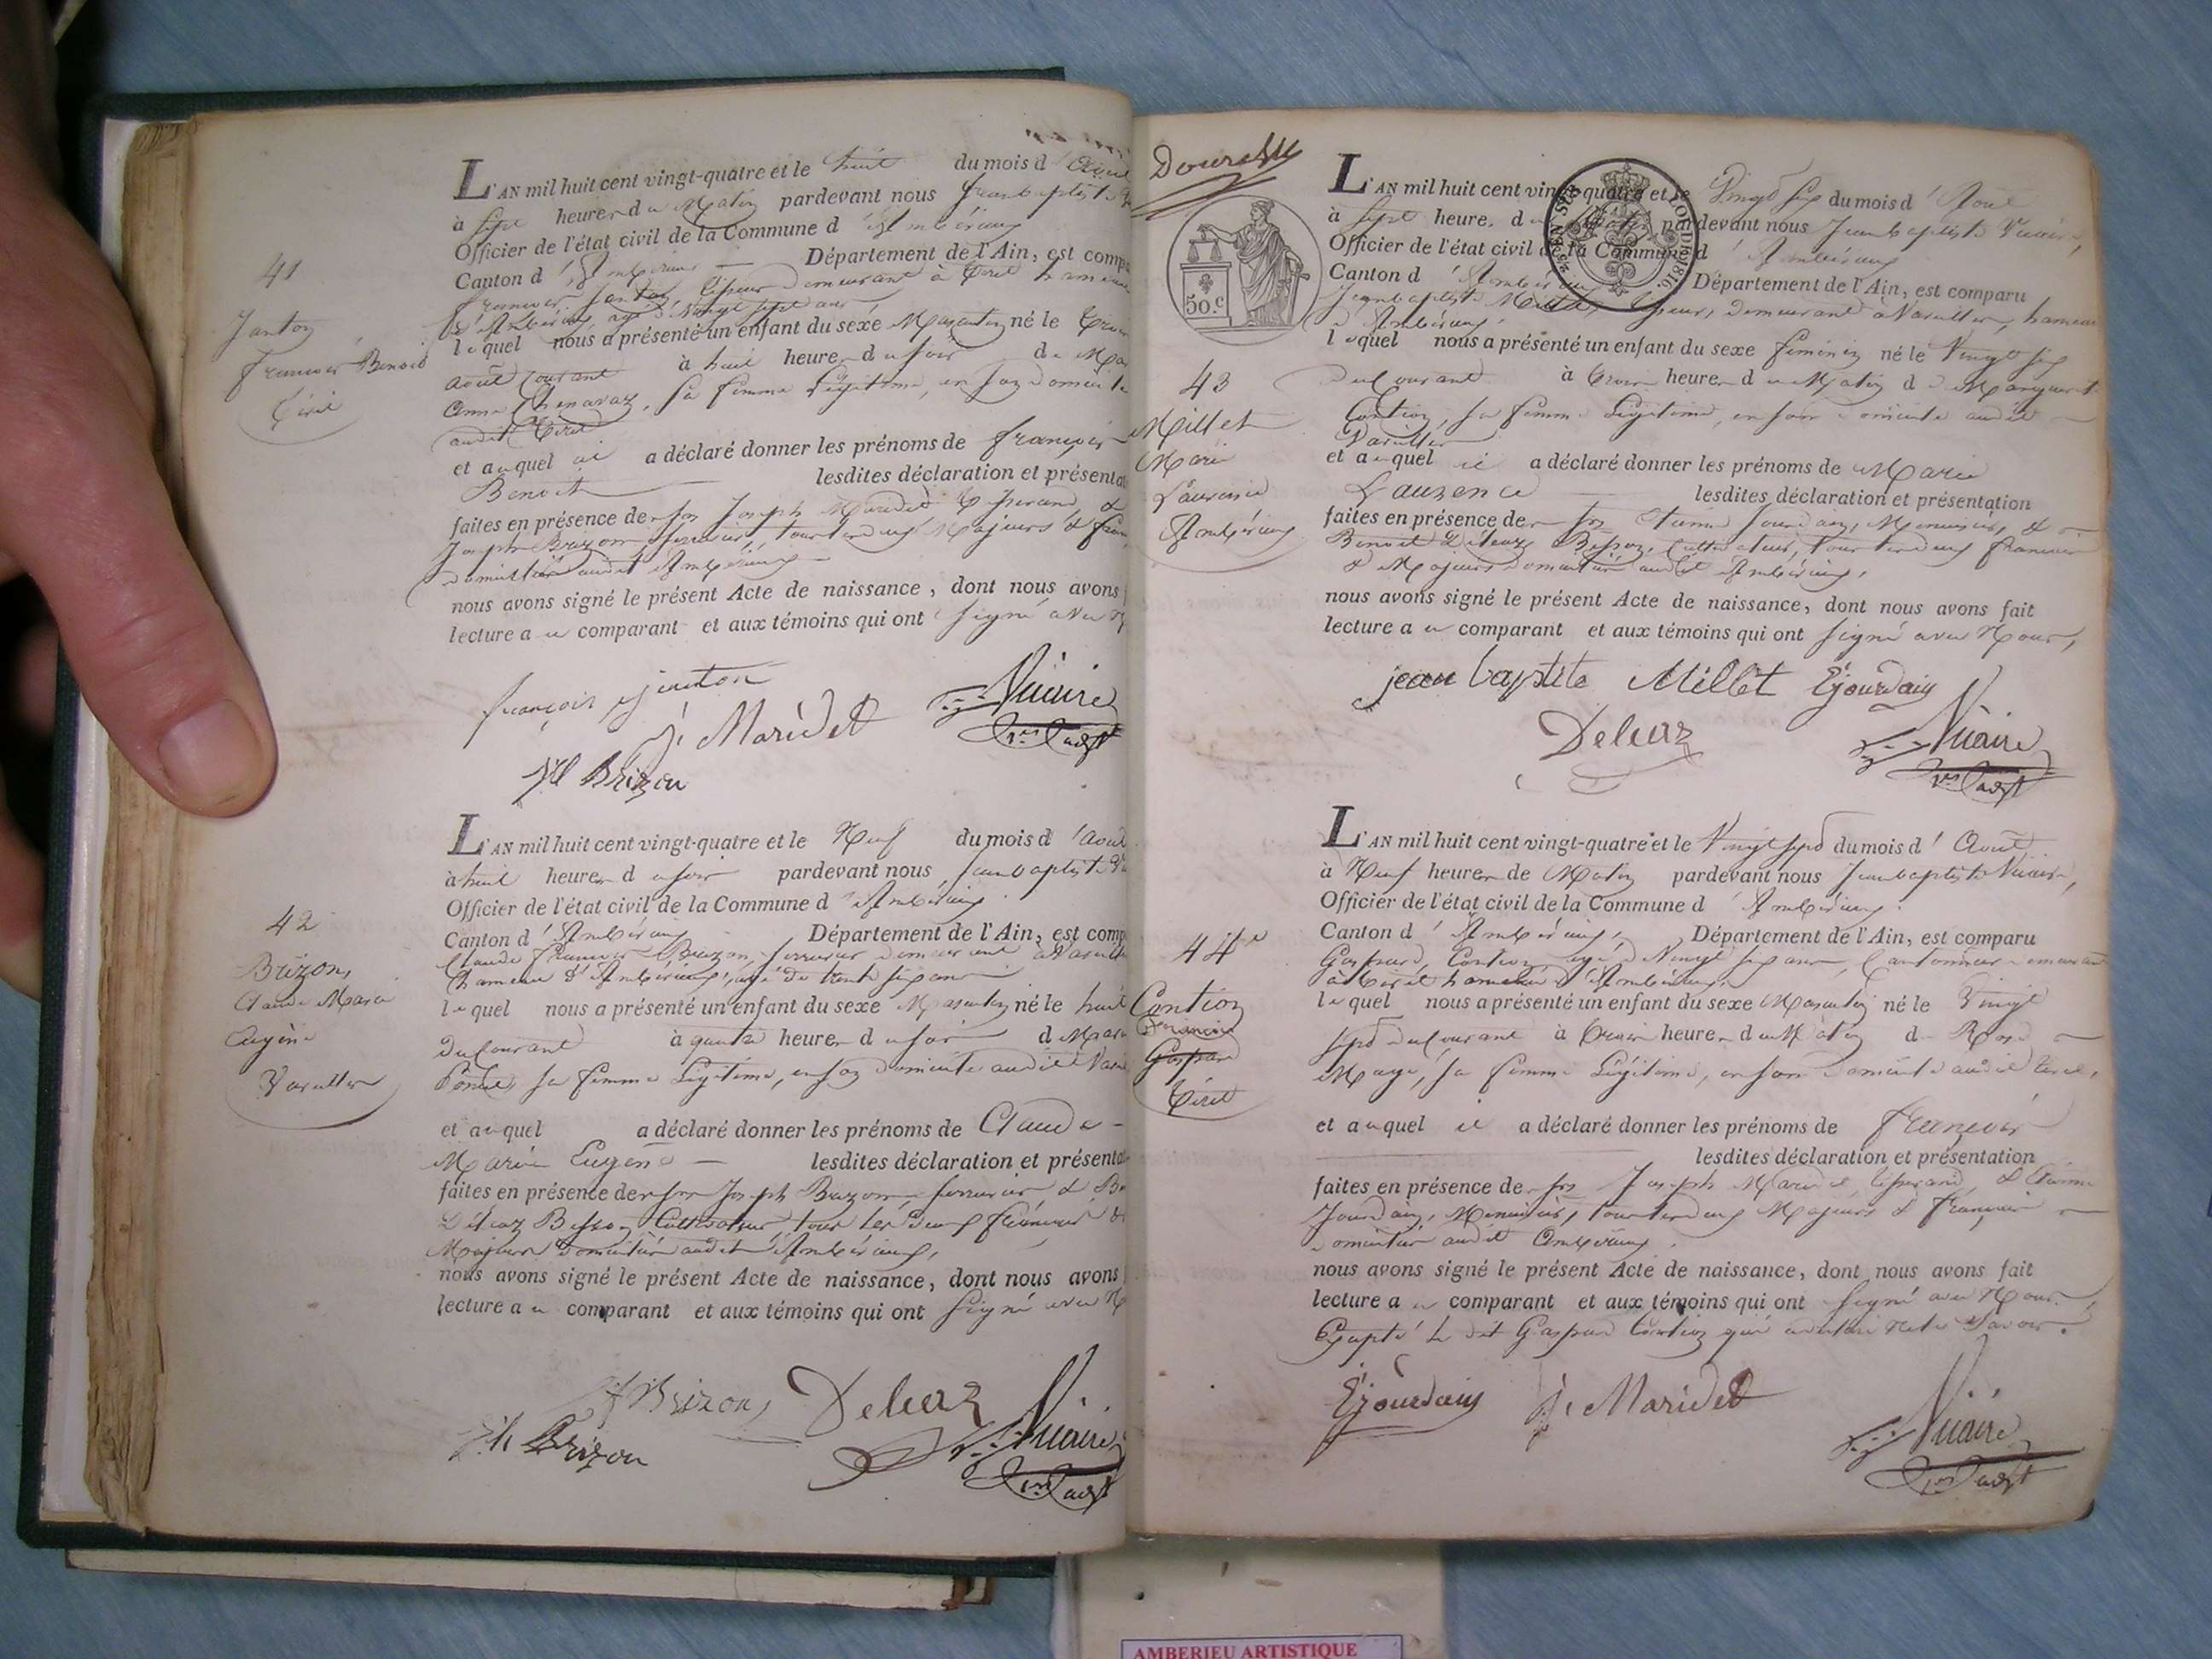 41
Janton
françois Benoit
Tiret
L'AN mil huit cent vingt-quatre et le huit du mois d'Août
à sept heures du Matin pardevant nous Jean baptiste
Officier de l'état civil de la Commune d'Ambérieux
Canton d'Ambérieux Département de l'Ain, est comp
françois Janton, demeurant à Tiret hameau
d'Ambérieux, agé de Vingt sept ans,
lequel nous a présenté un enfant du sexe Masculin né le
août courant à huit heures du soir de
Anne Chenavaz, sa femme Légitime, en son domicile
audit Tiret
et auquel il a déclaré donner les prénoms de françois
Benoit lesdites déclaration et présenta
faites en présence des srs Joseph Maridet Tisserand &
Joseph Brizon Serrurier, tous les deux Majeurs &
domiciliés audit Ambérieux
nous avons signé le présent Acte de naissance, dont nous avons
lecture au comparant et aux témoins qui ont signé avec
françois janton
J. Maridet
Jh Brizon
Vicaire
42
Brizon,
Claude Marie
Eugène
Vareilles
L'AN mil huit cent vingt-quatre et le Neuf du mois d'août
à huit heures du soir pardevant nous Jean baptiste
Officier de l'état civil de la Commune d'Ambérieux
Canton d'Ambérieux Département de l'Ain, est comp
Claude françois Brizon, serrurier demeurant à
hameau d'Ambérieux, agé de trente six ans
lequel nous a présenté un enfant du sexe Masculin né le huit
du Courant à quatre heures du soir de
sa femme Légitime, en son domicile audit
et auquel a déclaré donner les prénoms de Claude
Marie Eugène lesdites déclaration et présenta
faites en présence des srs Joseph Brizon serrurier, &
Déléaz Besson, Cultivateur, tous les deux françois &
Majeurs domiciliés audit Ambérieux,
nous avons signé le présent Acte de naissance, dont nous avons
lecture au comparant et aux témoins qui ont signé avec
f Brizon, Deleaz
Jh Brizon
Vicaire
50.c
43
Millet
Marie
Laurence
Ambérieux
L'AN mil huit cent vingt-quatre et le Vingt six du mois d'Août
à sept heures du Matin pardevant nous Jean baptiste Vicaire,
Officier de l'état civil de la Commune d'Ambérieux
Canton d'Ambérieux Département de l'Ain, est comparu
Jean baptiste Millet, demeurant à Vareilles, hameau
d'Ambérieux,
lequel nous a présenté un enfant du sexe féminin né le Vingt six
du Courant à trois heures du Matin de Marguerite
Contion, sa femme Légitime, en son domicile audit
Vareilles
et auquel il a déclaré donner les prénoms de Marie
Laurence lesdites déclaration et présentation
faites en présence des srs Etienne Jourdain, Menuisier, &
Benoit Déléaz Besson, Cultivateur, tous les deux françois
& Majeurs domiciliés audit Ambérieux,
nous avons signé le présent Acte de naissance, dont nous avons fait
lecture au comparant et aux témoins qui ont signé avec Nous,
jean baptiste Millet Ejourdain
Deleaz
Vicaire
44
Contion
françois
Gaspard
Tiret
L'AN mil huit cent vingt-quatre et le Vingt sept du mois d'Août
à Neuf heures de Matin pardevant nous Jean baptiste Vicaire,
Officier de l'état civil de la Commune d'Ambérieux
Canton d'Ambérieux, Département de l'Ain, est comparu
Gaspard Contion agé de Vingt six ans, Cantonnier demeurant
à Tiret hameau d'Ambérieux,
lequel nous a présenté un enfant du sexe Masculin né le Vingt
sept du courant à trois heures du Matin de Rose
Magé, sa femme Légitime, en son domicile audit Tiret,
et auquel il a déclaré donner les prénoms de françois
lesdites déclaration et présentation
faites en présence des srs Joseph Maridet, Tisserand, & Etienne
Jourdain, Menuisier, tous les deux Majeurs & françois
domiciliés audit Ambérieux.
nous avons signé le présent Acte de naissance, dont nous avons fait
lecture au comparant et aux témoins qui ont signé avec Nous.
Excepté le dit Gaspard Contion qui a déclaré ne le Savoir.
Ejourdain J. Maridet
Vicaire
AMBERIEU ARTISTIQUE